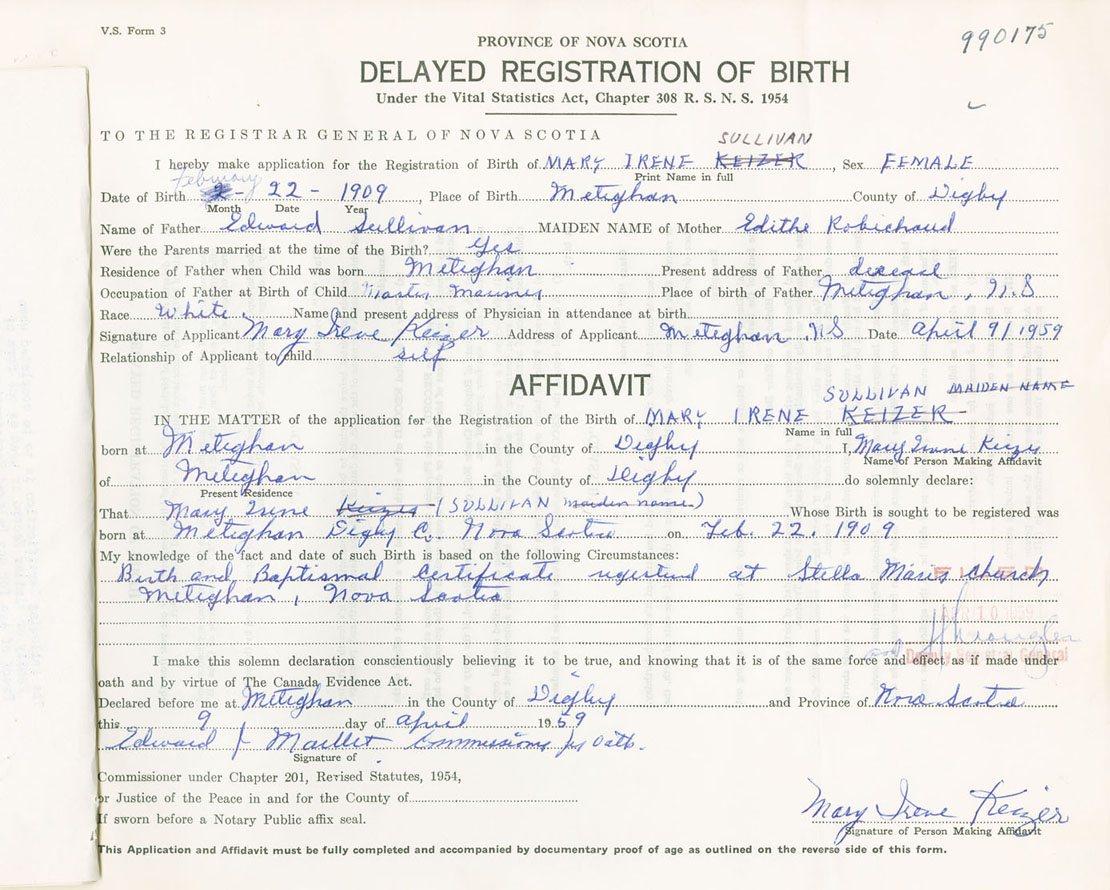 V.S. Form 3
990175
PROVINCE OF NOVA SCOTIA
DELAYED REGISTRATION OF BIRTH
Under the Vital Statistics Act, Chapter 308 R. S. N. S. 1954
TO THE REGISTRAR GENERAL OF NOVA SCOTIA
SULLIVAN
I hereby make application for the Registration of Birth of MARY IRENE KEIZER, Sex FEMALE
Print Name in full
February
Date of Birth 2 - 22 - 1909, Place of Birth Meteghan County of Digby
Month Date Year
Name of Father Edward Sullivan MAIDEN NAME of Mother Edithe Robichaud
Were the Parents married at the time of the Birth? Yes
Residence of Father when Child was born Meteghan Present address of Father deceased
Occupation of Father at Birth of Child Master Mariner Place of birth of Father Meteghan, N.S
Race White Name and present address of Physician in attendance at birth
Signature of Applicant Mary Irene Keizer Address of Applicant Meteghan, NS Date April 9/1959
Relationship of Applicant to child self
AFFIDAVIT
SULLIVAN MAIDEN NAME
IN THE MATTER of the application for the Registration of the Birth of MARY IRENE KEIZER
Name in full
born at Meteghan in the County of Digby I, Mary Irene Keizer
Name of Person Making Affidavit
of Meteghan in the County of Digby do solemnly declare:
Present Residence
That Mary Irene Keizer (SULLIVAN maiden name) Whose Birth is sought to be registered was
born at Meteghan Digby Co. Nova Scotia on Feb. 22. 1909
My knowledge of the fact and date of such Birth is based on the following Circumstances:
Birth and Baptismal Certificate registered at Stella Maris Church
Meteghan, Nova Scotia
FILED
APR 10 1959
Deputy Registrar General
I make this solemn declaration conscientiously believing it to be true, and knowing that it is of the same force and effect as if made under
oath and by virtue of The Canada Evidence Act.
Declared before me at Meteghan in the County of Digby and Province of Nova Scotia
this 9 day of April 1959
Edward J Maillet Commissioner for Oaths.
Signature of
Commissioner under Chapter 201, Revised Statutes, 1954,
or Justice of the Peace in and for the County of
If sworn before a Notary Public affix seal.
Mary Irene Keizer
Signature of Person Making Affidavit
This Application and Affidavit must be fully completed and accompanied by documentary proof of age as outlined on the reverse side of this form.